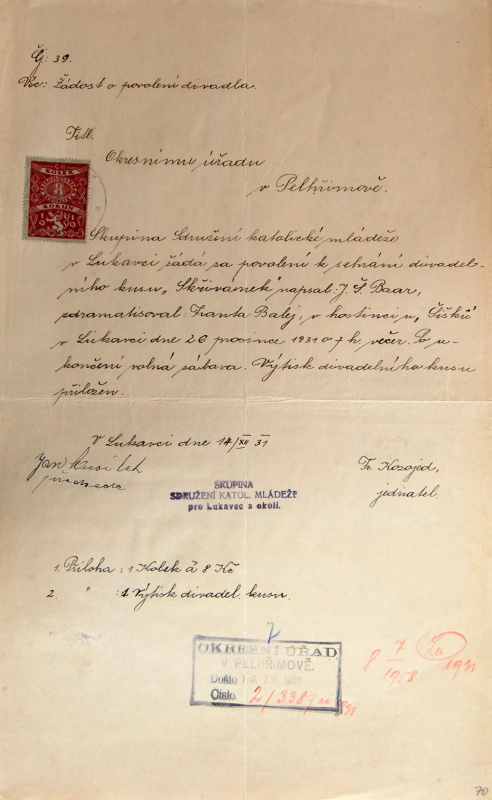 Čj: 39.
Věc: Žádost o povolení divadla.
Titl.
Okresnímu úřadu
v Pelhřimově.
KOLEK
8
KORUN
Skupina Sdružení katolické mládeže
v Lukavci žádá za povolení k sehrání divadel-
ního kusu „Skřivánek" napsal: J. Š. Baar,
zdramatisoval: Franta Balej, v hostinci u „Šišků"
v Lukavci dne 26 prosince 1931 o 7 h. večer. Po u-
končení volná zábava. Výtisk divadelního kusu
přiložen.
V Lukavci dne 14/XII 31
Jan
předseda
Fr. Kosojed,
jednatel.
SKUPINA
SDRUŽENÍ KATOL. MLÁDEŽE
pro Lukavec a okolí.
1. Příloha: 1 Kolek à 8 Kč
2. " : 1 Výtisk divadel. kusu.
OKRESNÍ ÚŘAD
V PELHŘIMOVĚ.
Došlo XII. 1931
Číslo
8 7 XII 1931
70